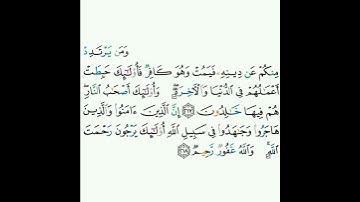 وَمَن يَرْتَدِدْ
مِنكُمْ عَن دِينِهِۦ فَيَمُتْ وَهُوَ كَافِرٌ فَأُو۟لَٰٓئِكَ حَبِطَتْ
أَعْمَٰلُهُمْ فِى ٱلدُّنْيَا وَٱلْءَاخِرَةِ ۖ وَأُو۟لَٰٓئِكَ أَصْحَٰبُ ٱلنَّارِ ۖ
هُمْ فِيهَا خَٰلِدُونَ ٢١٧ إِنَّ ٱلَّذِينَ ءَامَنُوا۟ وَٱلَّذِينَ
هَاجَرُوا۟ وَجَٰهَدُوا۟ فِى سَبِيلِ ٱللَّهِ أُو۟لَٰٓئِكَ يَرْجُونَ رَحْمَتَ
ٱللَّهِ ۚ وَٱللَّهُ غَفُورٌ رَّحِيمٌ ٢١٨